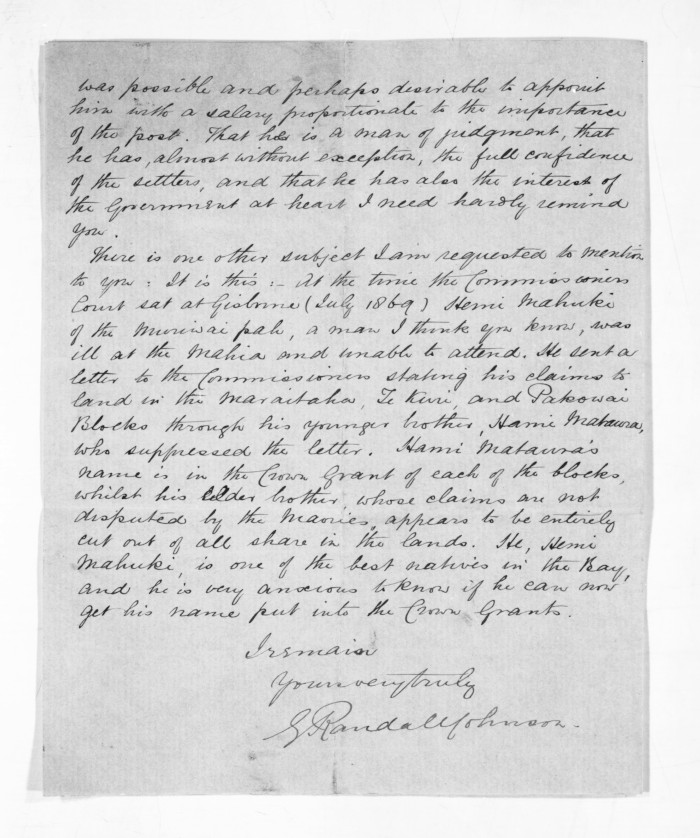 was possible and perhaps desirable to appoint
him with a salary proportionate to the importance
of the post. That he is a man of judgment, that
he has, almost without exception, the full confidence
of the settlers, and that he has also the interest of
the Government at heart I need hardly remind
you.
There is one other subject I am requested to mention
to you: It is this:- At the time the Commissioners
Court sat at Gisborne (July 1869) Hemi Mahuki
of the Muriwai pah, a man I think you know, was
ill at the Mahia and unable to attend. He sent a
letter to the Commissioners stating his claims to
land in the Maraitaha, Te Kuri, and Pakowai
Blocks through his younger brother, Hami Mataura,
who suppressed the letter. Hami Mataura's
name is in the Crown Grant of each of the blocks,
whilst his elder brother, whose claims are not
disputed by the Maories, appears to be entirely
cut out of all share in the lands. He, Hemi
Mahuki, is one of the best natives in the Bay,
and he is very anxious to know if he can now
get his name put into the Crown Grants.
I remain
Yours very truly
G Randall Johnson.